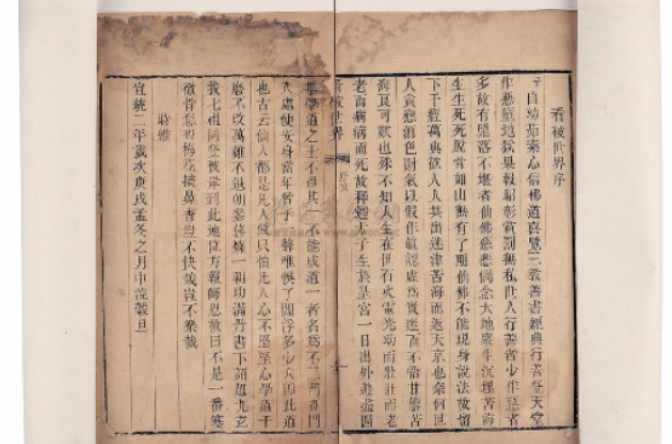 看破世界序
予自幼茹素心信佛道喜覽三教善書經典行善登天堂
作惡墮地獄果報昭彰賞罰無私世人行善者少作惡者
多故有墮落不堪者仙佛慈悲憫念大地衆生沉埋苦海
生生死死脫骨如山無有了期仙佛不能現身說法故留
下千經萬典欲人人共出迷津苦海而返天京也奈何世
人貪戀酒色財氣以假作眞認虛爲實迷而不悟甘墮苦
海良可歎也殊不知人生在世石火電光幼而壯壯而老
老而病病而死故釋迦太子生於皇宮一日出外遊盡聞
看破世界
序
學道之士不得其一不能成道一者名爲不二門者門
人處便安身當年曾子一聲唯悞了閻浮多少人卽此道
也古云仙人都是凡人做只怕凡人心不堅至心學道千
磨不改萬難不退朝參夜煉一朝功滿丹書下詔超九玄
拔七祖同登彼岸到此地位方報師恩故曰不是一番寒
徹骨怎得梅花撲鼻香豈不快哉豈不樂哉
時維
宣統二年歲次庚戌孟冬之月中浣穀旦